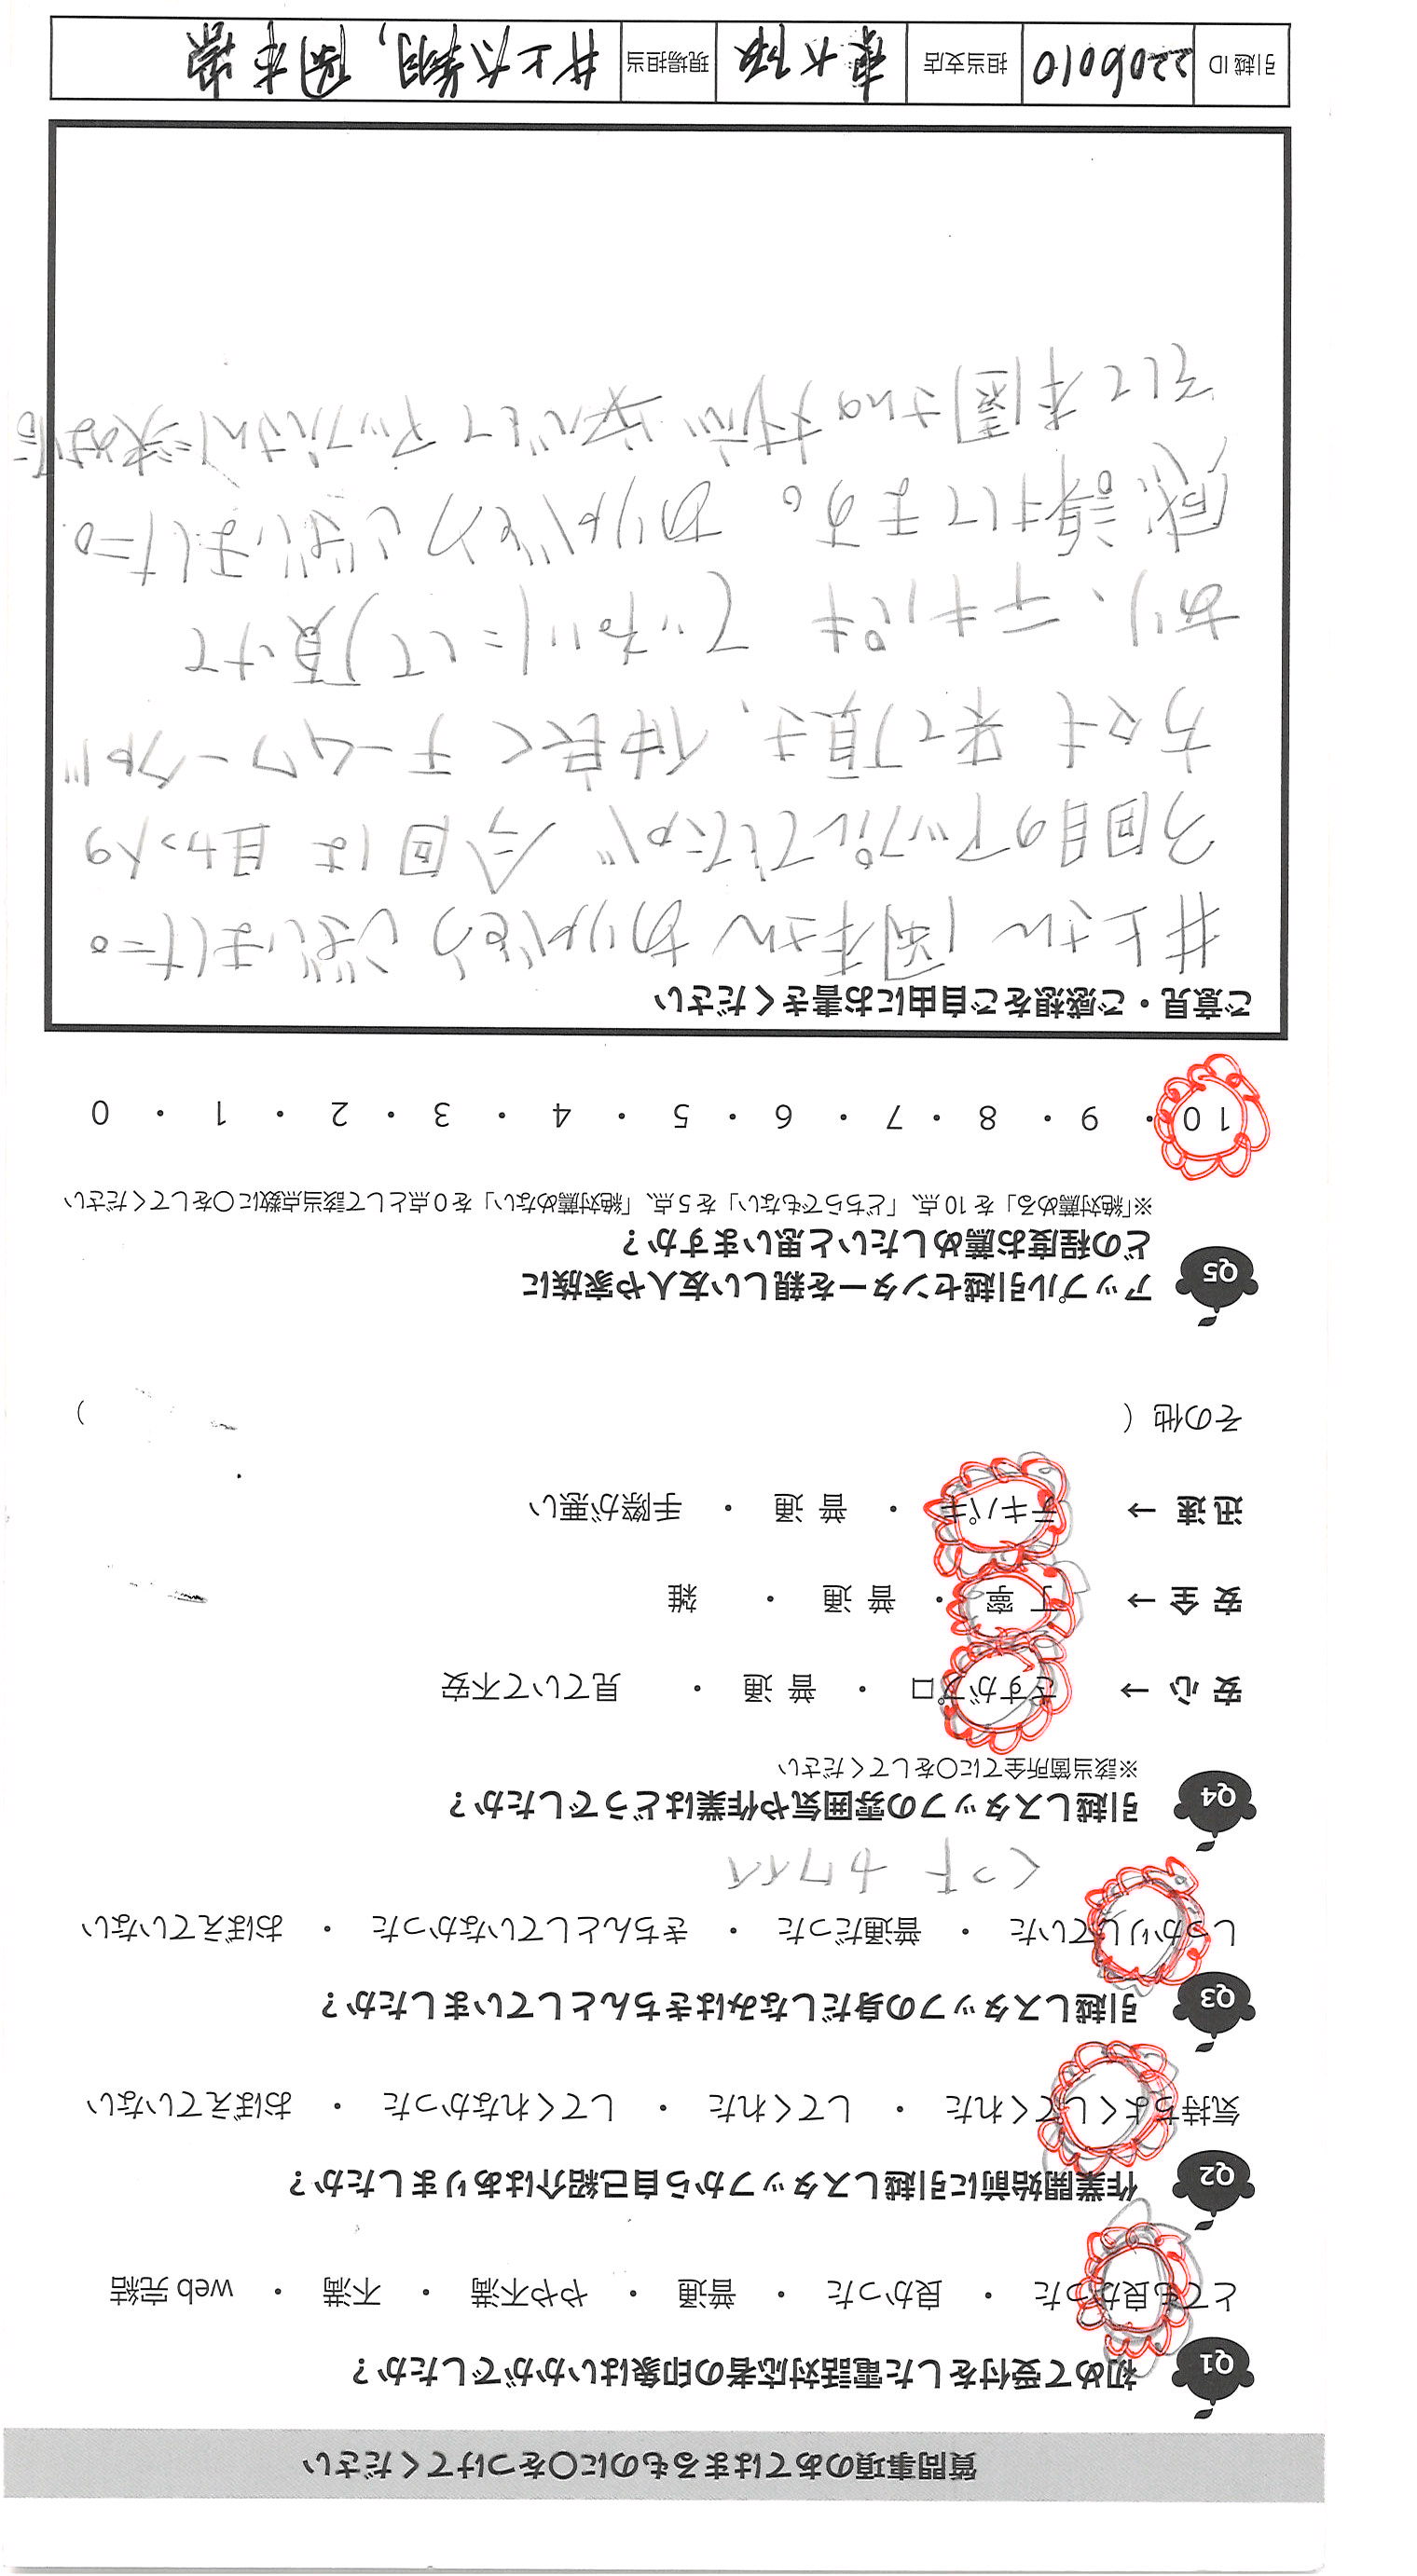 質問事項のあてはまるものに〇をつけてください
Q1 初めて受付をした電話対応者の印象はいかがでしたか？
とても良かった ・ 良かった ・ 普通 ・ やや不満 ・ 不満 ・ web 完結
Q2 作業開始前に引越しスタッフから自己紹介はありましたか？
気持ちよくしてくれた ・ してくれた ・ してくれなかった ・ おぼえていない
Q3 引越しスタッフの身だしなみはきちんとしていましたか？
しっかりしていた ・ 普通だった ・ きちんとしていなかった ・ おぼえていない
カワイイ
Q4 引越しスタッフの雰囲気や作業はどうでしたか？
※該当箇所全てに〇をしてください
安 心 → さすがプロ ・ 普 通 ・ 見ていて不安
安 全 → 丁 寧 ・ 普 通 ・ 雑
迅 速 → テキパキ ・ 普 通 ・ 手際が悪い
その他（ ）
Q5 アップル引越センターを親しい友人や家族に
どの程度お薦めしたいと思いますか？
※「絶対薦める」を 10 点、「どちらでもない」を 5 点、「絶対薦めない」を 0 点として該当点数に〇をしてください
10 ・ 9 ・ 8 ・ 7 ・ 6 ・ 5 ・ 4 ・ 3 ・ 2 ・ 1 ・ 0
ご意見・ご感想をご自由にお書きください
井上さん 岡本さん ありがとうございました。
3回目のアップルでしたが 今回は 助っ人の
方々も 来て頂き、仲良く チームワークが
あり、テキパキ ていねいにして頂けて
感謝してます。 ありがとうございました。
そして 本園さんの対応 学んでして アップルさんに決め
引越 ID 2206010 担当支店 東大阪 現場担当 井上大翔, 岡本